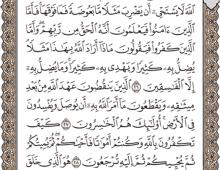 ٱللَّهَ لَا يَسْتَحْيِۦٓ أَن يَضْرِبَ مَثَلًا مَّا بَعُوضَةً فَمَا فَوْقَهَا فَأَمَّا
ٱلَّذِينَ ءَامَنُوا۟ فَيَعْلَمُونَ أَنَّهُ ٱلْحَقُّ مِن رَّبِّهِمْ وَأَمَّا
ٱلَّذِينَ كَفَرُوا۟ فَيَقُولُونَ مَاذَآ أَرَادَ ٱللَّهُ بِهَٰذَا مَثَلًا
يُضِلُّ بِهِۦ كَثِيرًا وَيَهْدِى بِهِۦ كَثِيرًا وَمَا يُضِلُّ بِهِۦٓ
إِلَّا ٱلْفَٰسِقِينَ ٢٦ ٱلَّذِينَ يَنقُضُونَ عَهْدَ ٱللَّهِ مِنۢ بَعْدِ
مِيثَٰقِهِۦ وَيَقْطَعُونَ مَآ أَمَرَ ٱللَّهُ بِهِۦٓ أَن يُوصَلَ وَيُفْسِدُونَ
فِى ٱلْأَرْضِ أُو۟لَٰٓئِكَ هُمُ ٱلْخَٰسِرُونَ ٢٧ كَيْفَ
تَكْفُرُونَ بِٱللَّهِ وَكُنتُمْ أَمْوَٰتًا فَأَحْيَٰكُمْ ثُمَّ يُمِيتُكُمْ
ثُمَّ يُحْيِيكُمْ ثُمَّ إِلَيْهِ تُرْجَعُونَ ٢٨ هُوَ ٱلَّذِى خَلَقَ